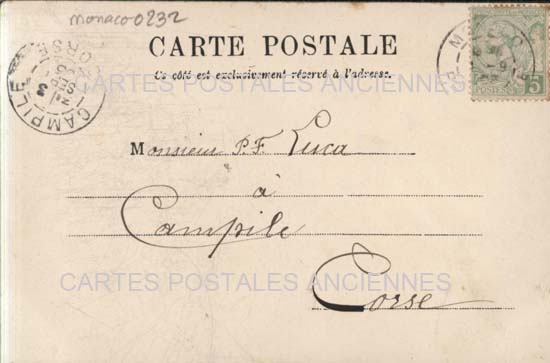 monaco 0232
CARTE POSTALE
Ce côté est exclusivement réservé à l'adresse.
CAMPILE
CORSE
POSTES 5
CARTES POSTALES ANCIENNES
Monsieur P.F. Luca
à
Campile
CARTES POSTALES ANCIENNES
Corse